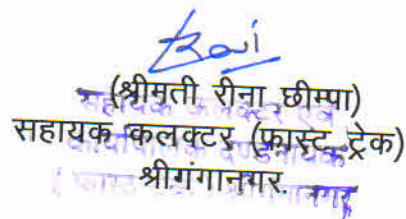 (श्रीमती रीना छीम्पा)
सहायक कलक्टर (फास्ट ट्रेक)
श्रीगंगानगर.